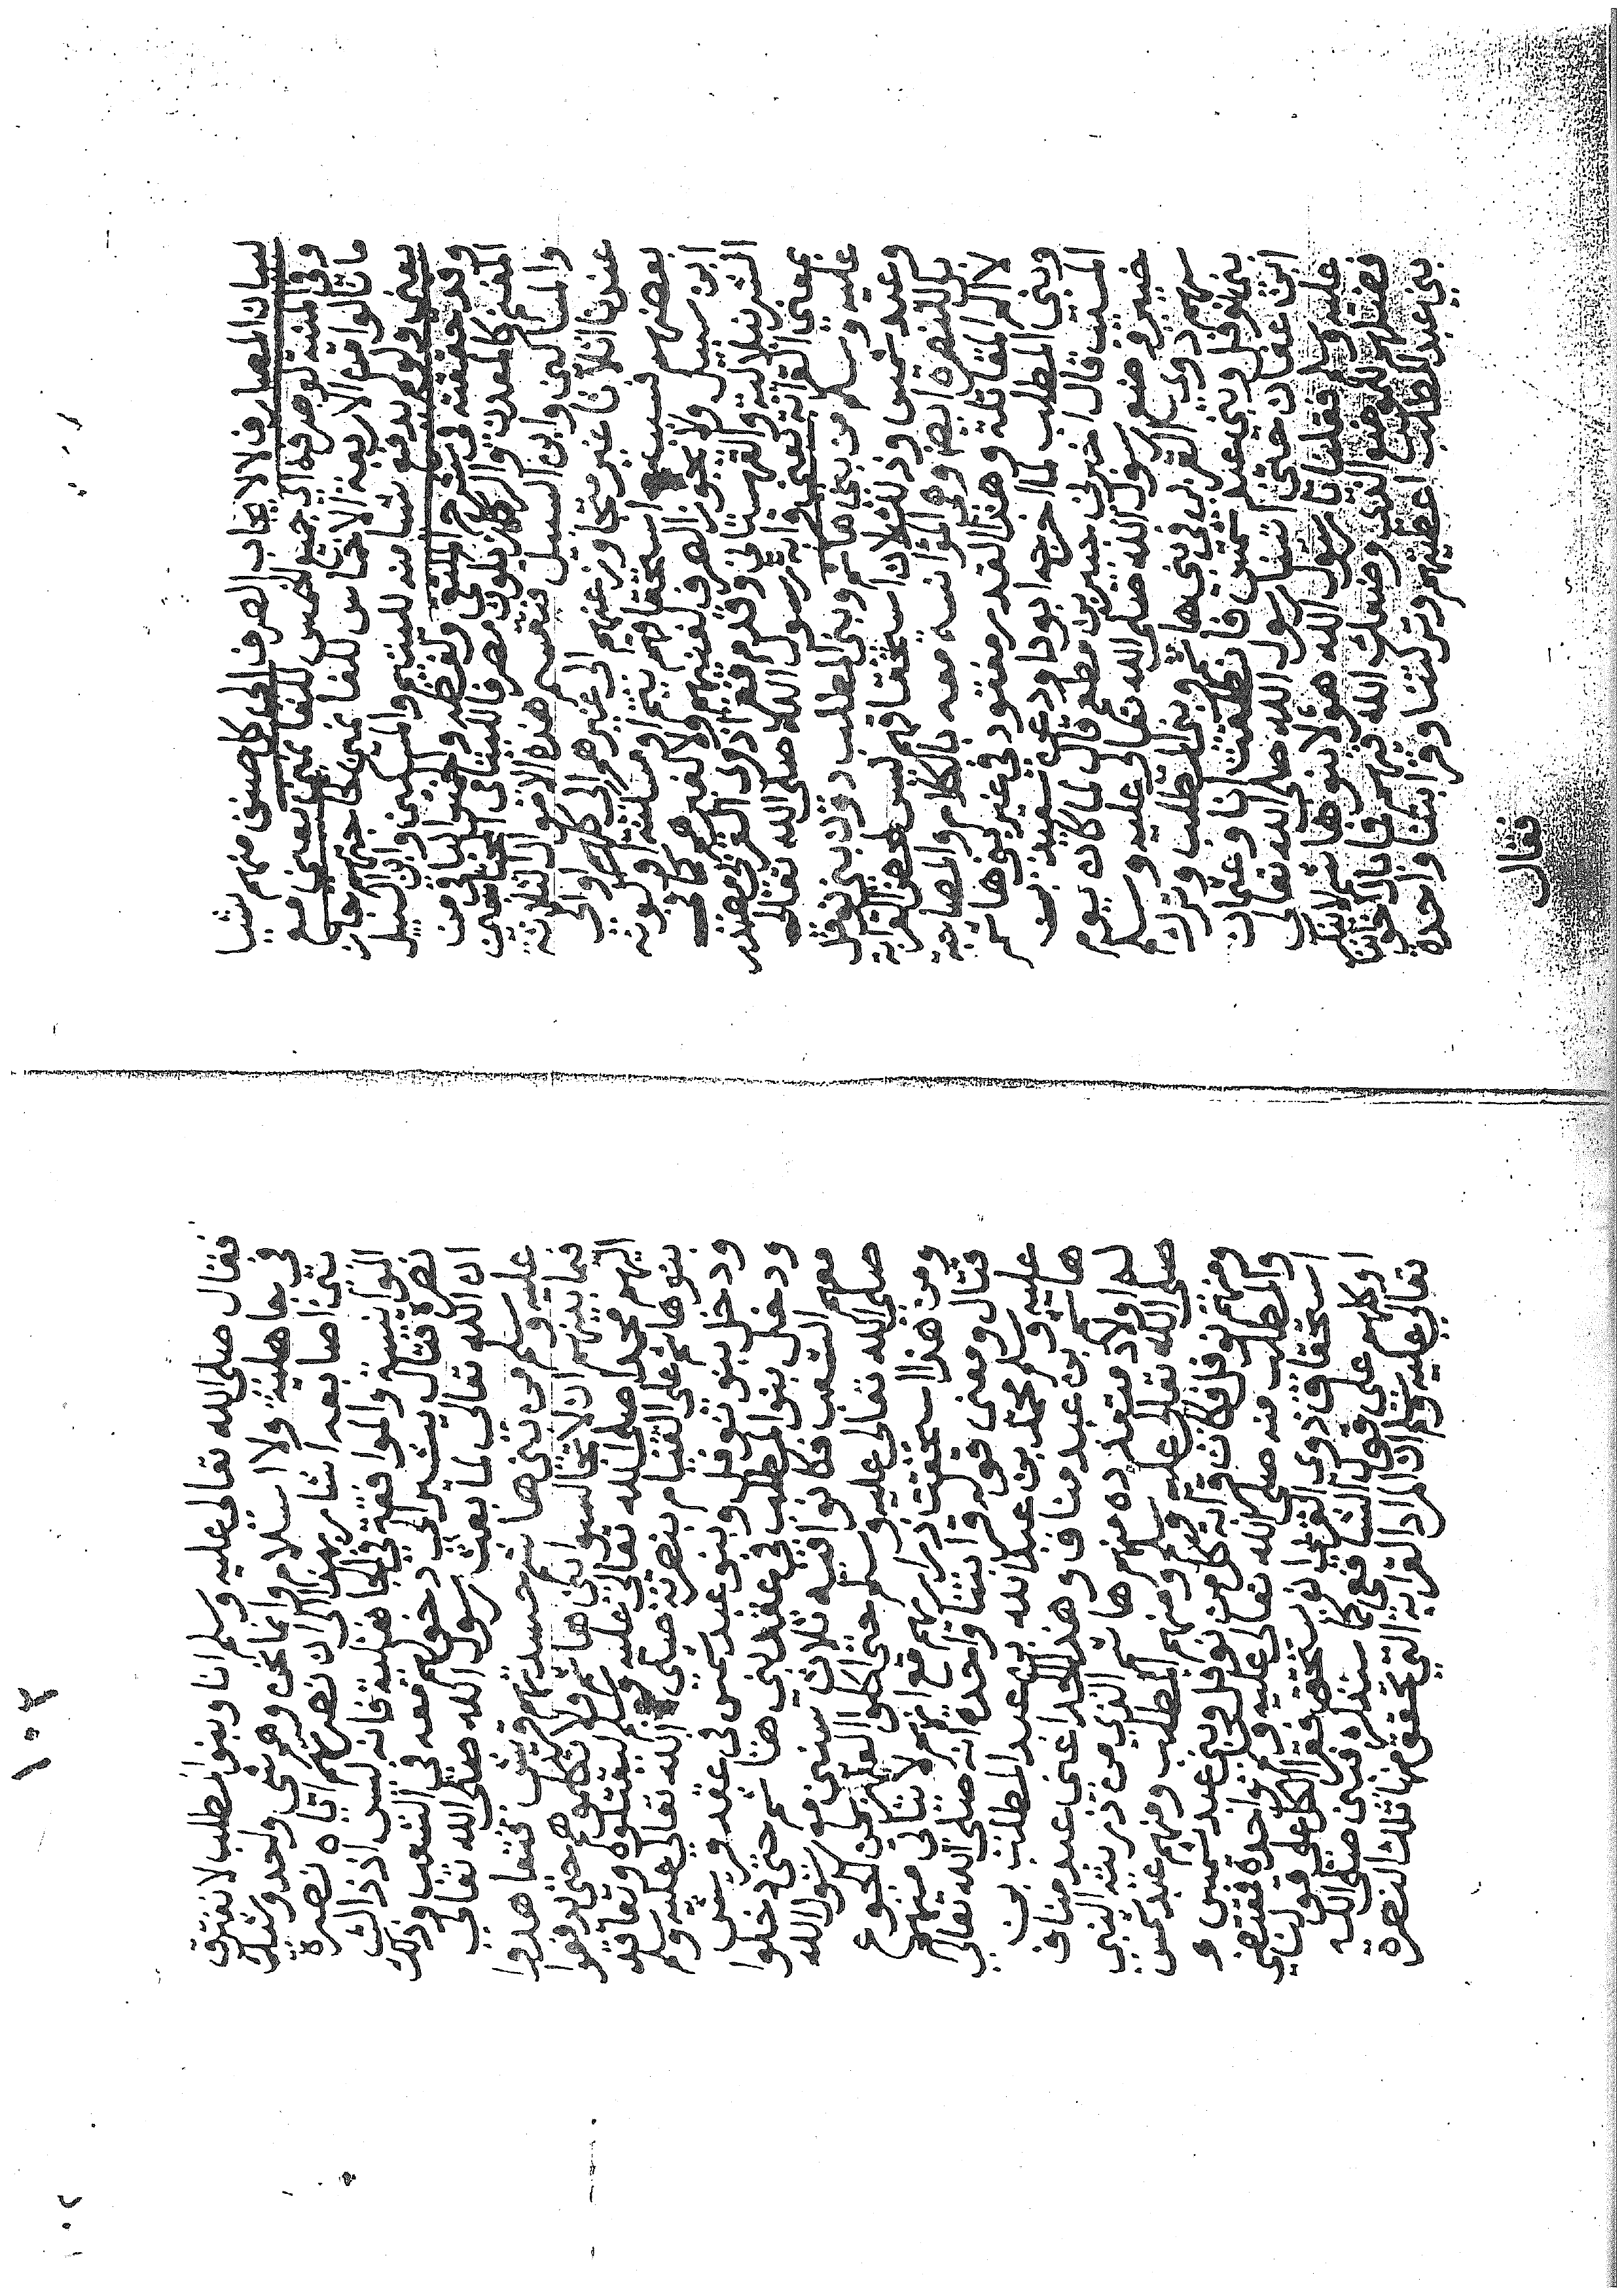 لبيان المصارف لا لايجاب الصرف الى كل صنف منهم شيا
وفي المنية لو صرفه اي جميع الخمس للغانمين يعني
ما نالوا من الاربعة الاخماس للغانمين لحاجتهم جاز
يعني ولو لم يدفع شيا منه لليتيم والمسكين وابن السبيل
وقد حققته في شرح الملتقى ولفظه والخمس الباقي من
المغنم كالمعدن والركاز يكون مصرفا لليتامى المحتاجين
والمساكين وابن السبيل فتقسم هذه الاموال الثلاثة
عندنا اثلاثا غير متجاوز عنهم الى غيرهم الى كلهم او الى
بعضهم فسبب استحقاقهم يتم او مسكنة او كونه
ابن سبيل ولا يجوز الصرف لغنيهم ولا لغيرهم كما في
الشرنبلالية والقهستاني وقدم فقرا ذوي القربى
بمعنى القرابة يعني قرابة رسول الله صلى الله تعالى
عليه وسلم من بني هاشم وبني المطلب دون بني نوفل
وعبد شمس وذلك لان استحقاقهم ليس لمحض القرابة
بل للنصرة ايضا وهي الموانسة معه بالكلام والمصاحبة
لا المقاتلة وهذا القدر مفقود في غير بني هاشم
وبني المطلب لما اخرجه ابو داود عن سعيد بن
المسيب قال اخبرني جبير بن مطعم قال لما كان يوم
خيبر وضع رسول الله صلى الله تعالى عليه وسلم
سهم ذوي القربى في بني هاشم وبني المطلب وترك
بني نوفل وبني عبد شمس فانطلقت انا وعثمان
ابن عفان حتى اتينا رسول الله صلى الله تعالى
عليه وسلم فقلنا يا رسول الله هؤلاء بنو هاشم لا ننكر
فضلهم للموضع الذي وضعك الله فيهم فما بال اخواننا
بني عبد المطلب اعطيتهم وتركتنا وقرابتنا واحدة
فقال
١٠٢
فقال صلى الله تعالى عليه وسلم انا وبنوا المطلب لا نفترق
في جاهلية ولا اسلام وانما نحن وهم شي واحد وشبك
بين اصابعه اشار بهذا الى ان نصرتهم اياه نصرة
الموانسة والموافقة في الجاهلية فانه ليس اذ ذاك
نصرة قتال يشير الى دخولهم معه في الشعب وذلك
ان الله تعالى لما بعث رسول الله صلى الله تعالى
عليه وسلم من بني هاشم حسدتهم قريش فتعاهدوا
فيما بينهم ان لا تجالسوا بني هاشم ولا تكلموهم حتى يدفعوا
اليهم محمدا صلى الله تعالى عليه وسلم ليقتلوه وتعاقد
بنو هاشم على القيام بنصرته صلى الله تعالى عليه وسلم
ودخل بنو نوفل وبنو عبد شمس في عقد قريش
ودخل بنو المطلب في عقد بني هاشم حتى دخلوا
معهم الشعب فكانوا فيه ثلاث سنين مع رسول الله
صلى الله تعالى عليه وسلم حتى اكلوا العلهز من الجوع
ومن هذا استحقت ذراريهم مع انهم لا يتاتى منهم
قتال ومعنى قوله قرابتنا واحدة انه صلى الله تعالى
عليه وسلم محمد بن عبد الله بن عبد المطلب بن
هاشم بن عبد مناف وهذا الجد اعني عبد مناف
له اولاد متعددة منهم هاشم الذي من ذريته النبي
صلى الله تعالى عليه وسلم ومنهم المطلب ومنهم عبد شمس
ومنهم نوفل فكان قرابة كل من نوفل وبني عبد شمس و
والمطلب منه صلى الله تعالى عليه وسلم واحدة فمقتضى
استحقاق ذوي القربى ان يستحق فقرا الكل على قولنا
او كلهم على قول الشافعي كما سنذكره فبين صلى الله
تعالى عليه وسلم ان المراد القرابة التي تحقق منها تلك النصرة